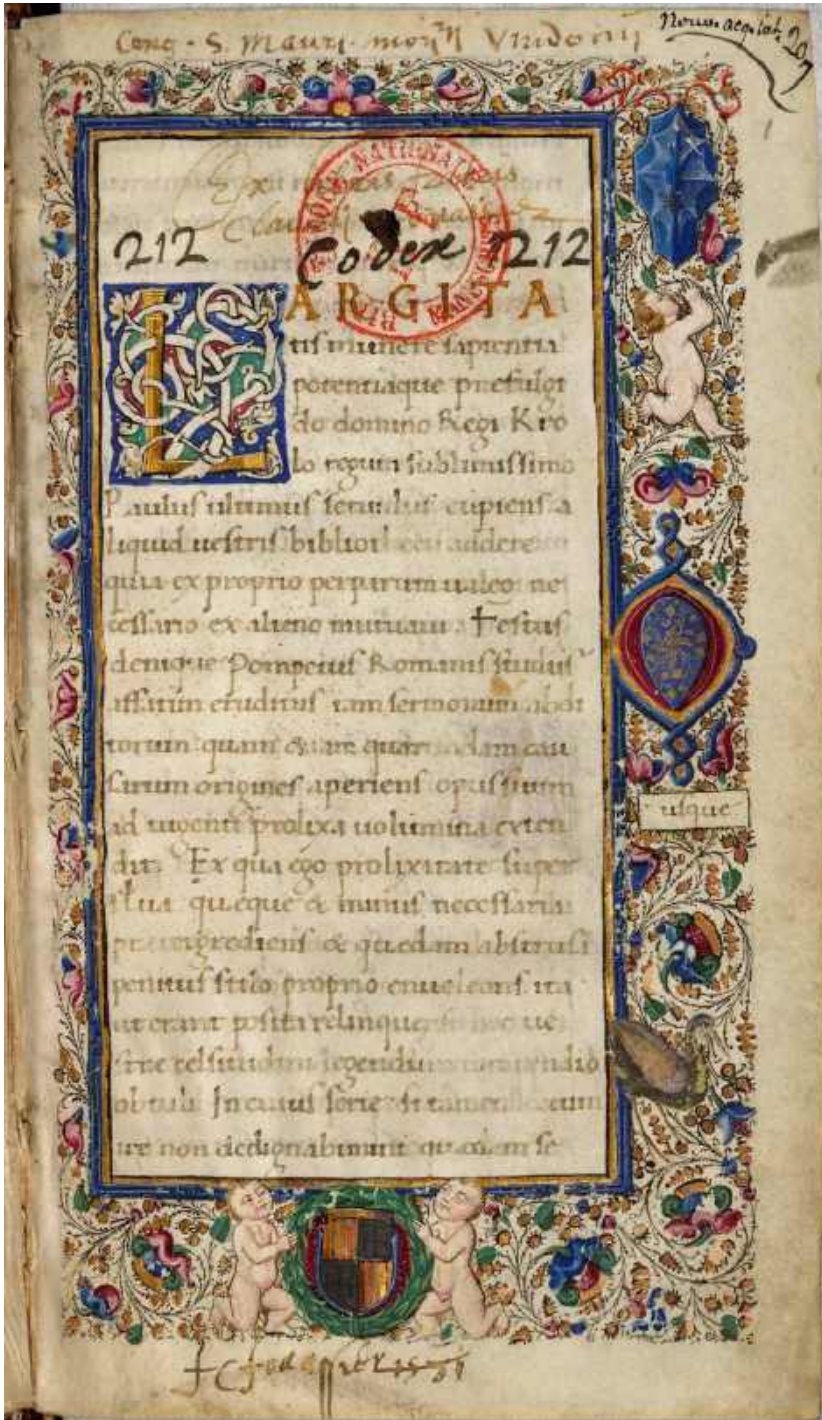 Cong. S. Mauri
Novum acquisit. 207
BIBLIOTHECA NATIONALE
212 Codex 1212
LARGITA
tis munere sapientia
potentiaque prefulgi
do domino Regi Kro
lo regum sublimissimo
Paulus ultimus seruulus cupiens a
liquid uestris bibliothecis addere
quia ex proprio perparum ualeo ne
cessario ex alieno mutuaui Festus
denique Pompeius Romanis studiis
affatim eruditus tam sermonum abdi
torum quam etiam quarundam cau
sarum origines aperiens opus suum
ad uigenti prolixa uolumina exten
dit. Ex qua ego prolixitate super
flua queque & minus necessaria
pretergrediens & quedam abstrusa
penitus stilo proprio enucleans ita
ut erant posita relinquens hec ue
stre celsitudini legenda compendio
obtuli In cuius serie si tamen lectum
ire non dedignabimini quedam se
usque